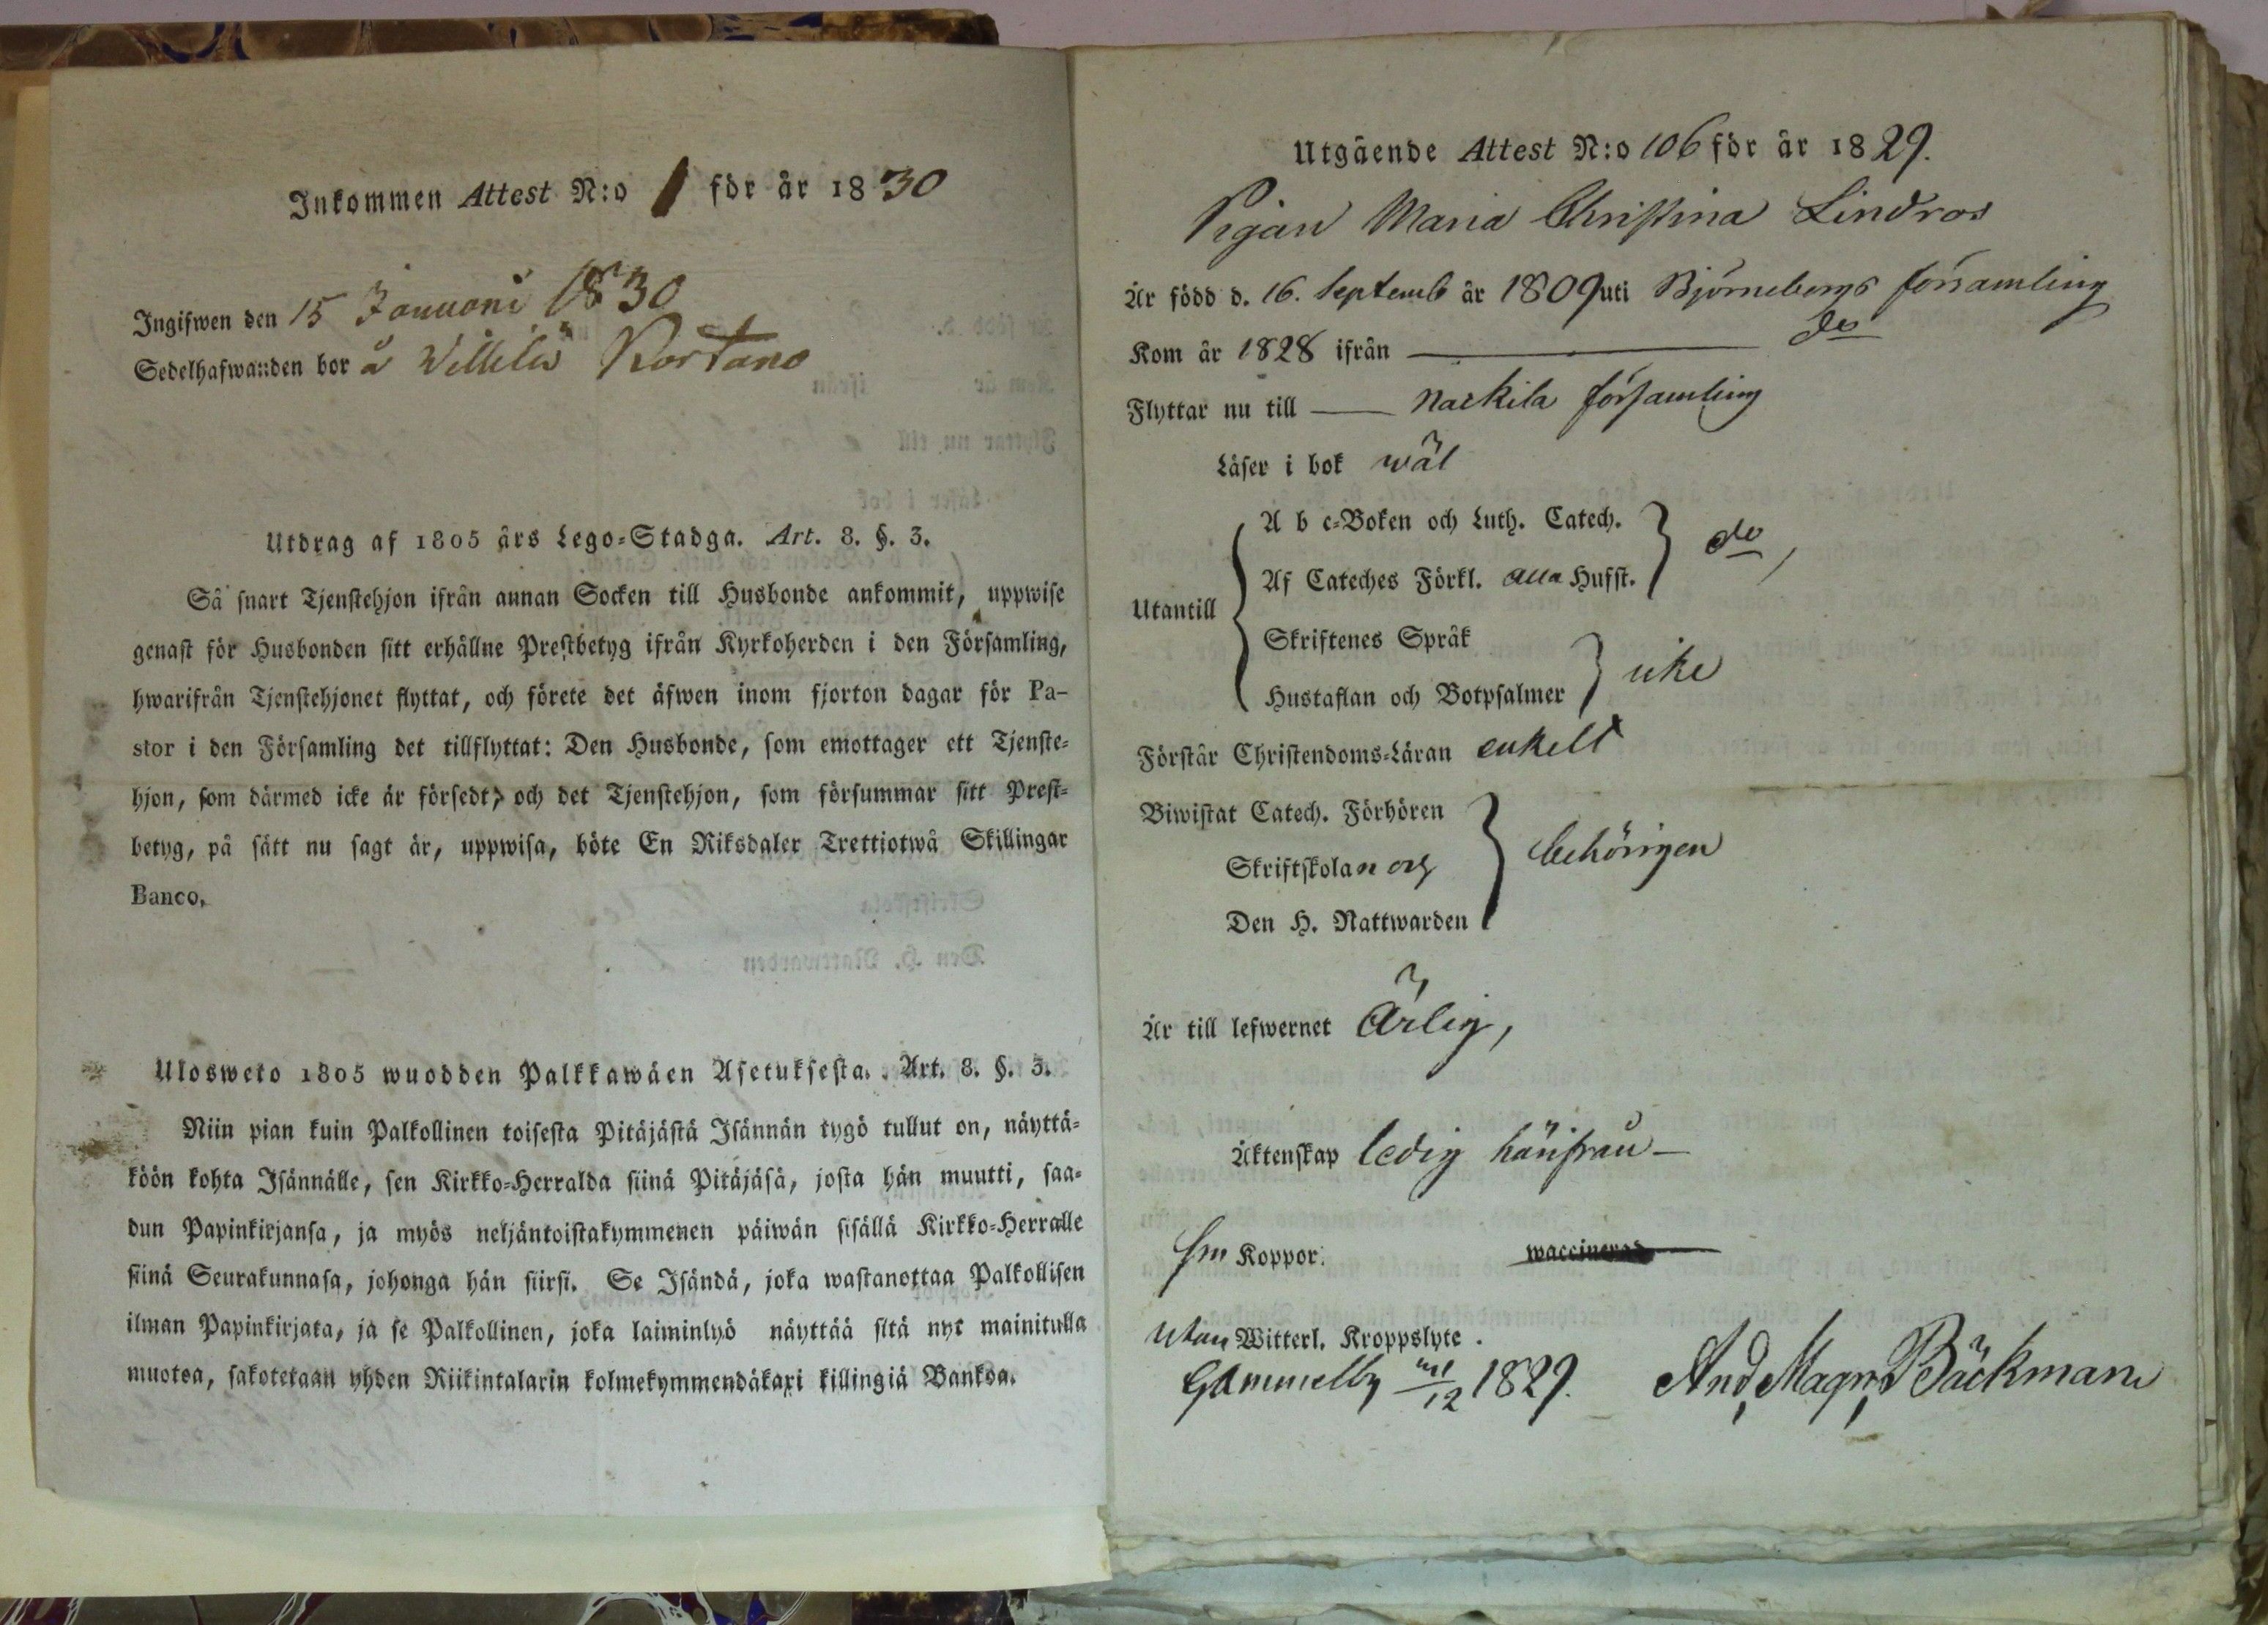 Inkommen Attest N:o 1 för år 1830
Ingifwen den 15 Januari 1830
Sedelhafwanden bor å Willilä Kortano
Utdrag af 1805 års Lego-Stadga. Art. 8. §. 3.
Så snart Tjenstehjon ifrån annan Socken till Husbonde ankommit, uppwise
genast för Husbonden sitt erhållne Prestbetyg ifrån Kyrkoherden i den Församling,
hwarifrån Tjenstehjonet flyttat, och förete det äfwen inom fjorton dagar för Pa-
stor i den Församling det tillflyttat: Den Husbonde, som emottager ett Tjenste-
hjon, som därmed icke är försedt, och det Tjenstehjon, som försummar sitt Prest-
betyg, på sätt nu sagt är, uppwisa, böte En Riksdaler Trettiotwå Skillingar
Banco.
Ulosweto 1805 wuodden Palkkawäen Asetuksesta. Art. 8. §. 3.
Niin pian kuin Palkollinen toisesta Pitäjästä Isännän tygö tullut on, näyttä-
köön kohta Isännälle, sen Kirkko-Herralda siinä Pitäjäsä, josta hän muutti, saa-
dun Papinkirjansa, ja myös neljäntoistakymmenen päiwän sisällä Kirkko-Herralle
siinä Seurakunnasa, johonga hän siirsi. Se Isändä, joka wastanottaa Palkollisen
ilman Papinkirjata, ja se Palkollinen, joka laiminlyö näyttää sitä nyt mainitulla
muotoa, sakotetaan yhden Riikintalarin kolmekymmendäkaxi killingiä Bankoa.
Utgående Attest N:o 106 för år 1829.
Pigan Maria Christina Lindros
Är född d. 16. Septemb år 1809 uti Björneborgs församling
Kom år 1828 ifrån do
Flyttar nu till Nackila församling
Läser i bok wäl
A b c-Boken och Luth. Catech.
do,
Af Cateches Förkl. alla Hufst.
Utantill
Skriftenes Språk
icke
Hustaflan och Botpsalmer
Förstår Christendoms-Läran enkelt
Biwistat Catech. Förhören
behörigen
Skriftskolan och
Den H. Nattwarden
Är till lefwernet Ärlig,
Äktenskap ledig härifrån
Koppor. waccinerad
Utan Witterl. Kroppslyte.
Gammelby 12 1829. And. Magn. Bäckman